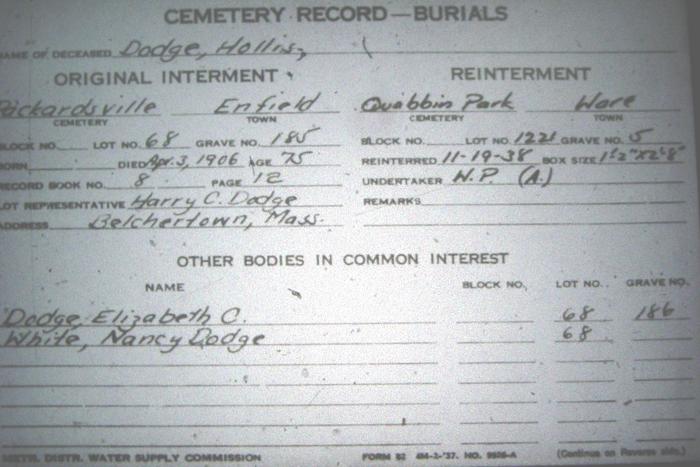 CEMETERY RECORD—BURIALS
NAME OF DECEASED Dodge, Hollis,
ORIGINAL INTERMENT REINTERMENT
Packardsville Enfield Quabbin Park Ware
CEMETERY TOWN CEMETERY TOWN
BLOCK NO. LOT NO. 68 GRAVE NO. 185 BLOCK NO. LOT NO. 1221 GRAVE NO. 5
BORN DIED Apr. 3, 1906 AGE 75 REINTERRED 11-19-38 BOX SIZE 1'2"x2'8"
RECORD BOOK NO. 8 PAGE 12 UNDERTAKER W.P. (A.)
LOT REPRESENTATIVE Harry C. Dodge REMARKS
ADDRESS Belchertown, Mass.
OTHER BODIES IN COMMON INTEREST
NAME BLOCK NO. LOT NO. GRAVE NO.
Dodge, Elizabeth C. 68 186
White, Nancy Dodge 68
METR. DISTR. WATER SUPPLY COMMISSION FORM 82 4M-2-'37. NO. (Continue on Reverse side.)